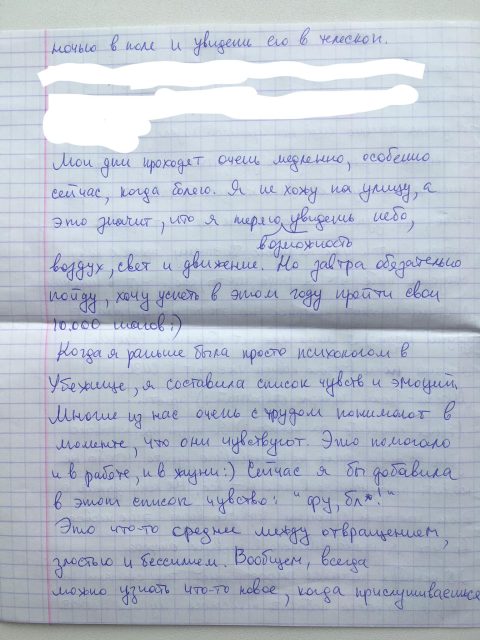 ночью в поле и увидели его в
Мои дни проходят очень медленно, особенно
сейчас, когда болею. Я не хожу на улицу, а
это значит, что я теряю увидеть небо,
возможность
воздух, свет и движение. Но завтра обязательно
пойду, хочу успеть в этом году пройти свои
10.000 шагов :)
Когда я раньше была просто психологом в
Убежище, я составила список чувств и эмоций.
Многие из нас очень с трудом понимают в
моменте, что они чувствуют. Это помогало
и в работе, и в жизни :) Сейчас я бы добавила
в этот список чувство: "фу, бл*!"
Это что-то среднее между отвращением,
злостью и бессилием. Вообщем, всегда
можно узнать что-то новое, когда прислушиваешься